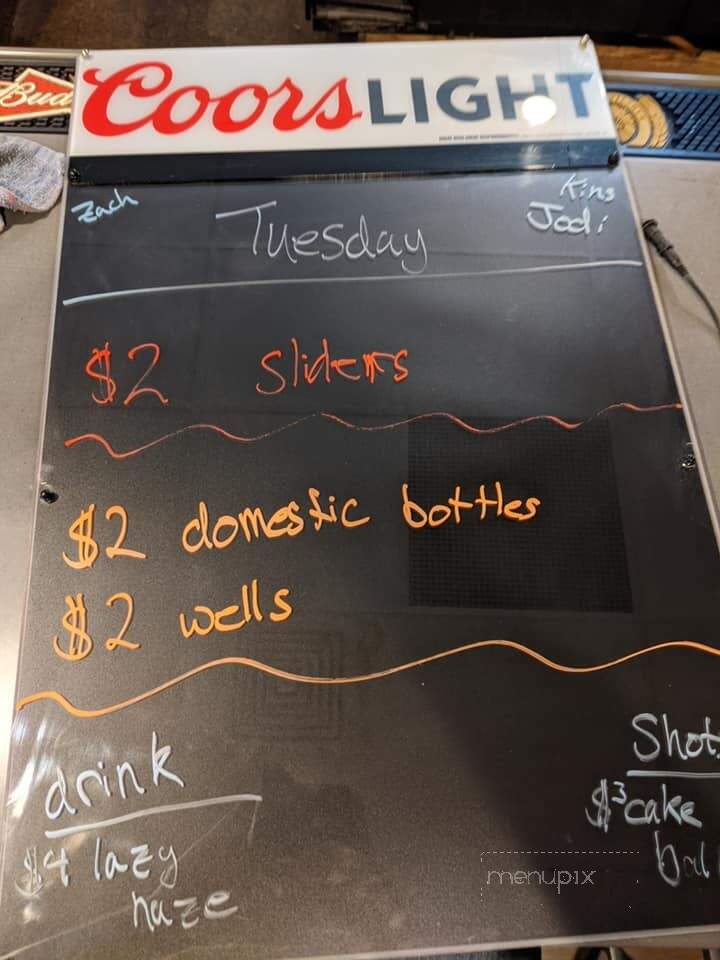 Bud
Coors LIGHT
Zach
Kins
Tuesday
Jodi
$2 sliders
$2 domestic bottles
$2 wells
drink
Shot
$4 lazy
haze
$3 cake
bal
menupix